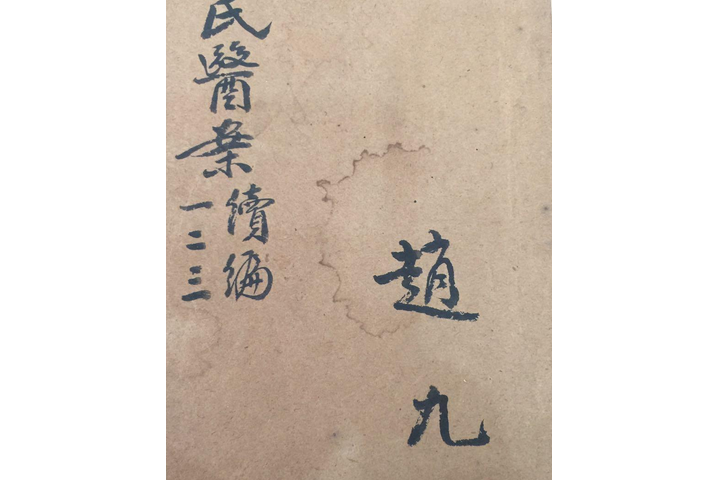 趙九
氏醫案
續編
一二三